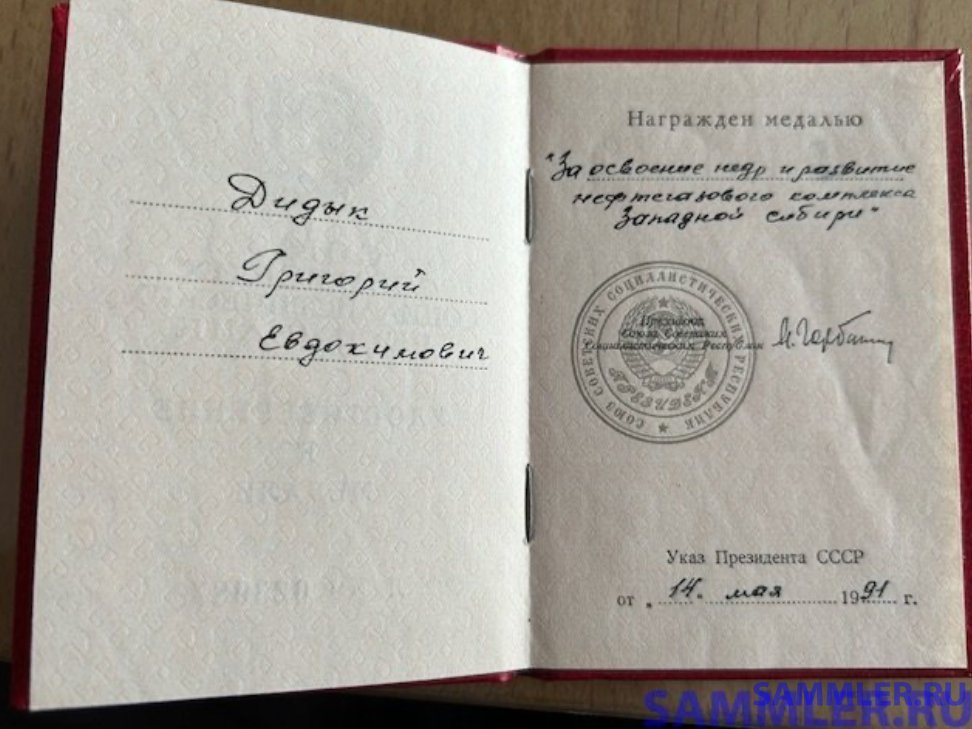 Дидык
Григорий
Евдокимович
Награжден медалью
"За освоение недр и развитие
нефтегазового комплекса
Западной сибири"
СОЮЗ СОВЕТСКИХ СОЦИАЛИСТИЧЕСКИХ РЕСПУБЛИК
Президент
Союза Советских
Социалистических Республик
ПРЕЗИДЕНТ
М. Горбачев
Указ Президента СССР
от „ 14. мая 1991 г.
SAMMLER.RU
SAMMLER.RU